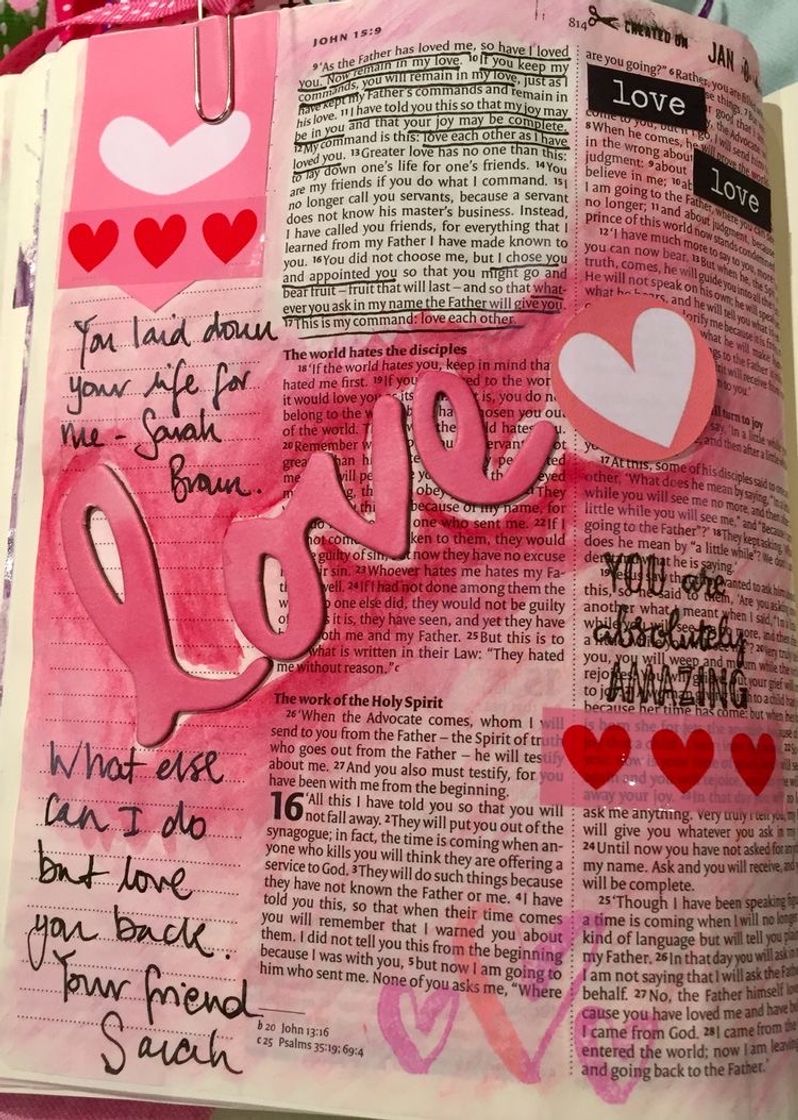 JOHN 15:9
814
CREATED ON
JAN
You laid down
your life for
me - Sarah
Brown.
love
What else
can I do
but love
you back.
Your friend
Sarah
9'As the Father has loved me, so have I loved
you. Now remain in my love. 10If you keep my
commands, you will remain in my love, just as I
have kept my Father's commands and remain in
his love. 11I have told you this so that my joy may
be in you and that your joy may be complete.
12My command is this: love each other as I have
loved you. 13Greater love has no one than this:
to lay down one's life for one's friends. 14You
are my friends if you do what I command. 15I
no longer call you servants, because a servant
does not know his master's business. Instead,
I have called you friends, for everything that I
learned from my Father I have made known to
you. 16You did not choose me, but I chose you
and appointed you so that you might go and
bear fruit – fruit that will last – and so that what-
ever you ask in my name the Father will give you.
17This is my command: love each other.
The world hates the disciples
18'If the world hates you, keep in mind tha
hated me first. 19If you ed to the wor
it would love you is, you do n
belong to the w osen you out
of the world. T ld hates
20Remember w servant
obey They
because of my name, for
one who sent me. 22If I
not come ken to them, they would
guilty of sin, but now they have no excuse
r sin. 23Whoever hates me hates my Fa-
well. 24If I had not done among them the
w o one else did, they would not be guilty
of it is, they have seen, and yet they have
oth me and my Father. 25But this is to
what is written in their Law: "They hated
me without reason."c
The work of the Holy Spirit
26'When the Advocate comes, whom I will
send to you from the Father – the Spirit of truth
who goes out from the Father – he will testify
about me. 27And you also must testify, for you
have been with me from the beginning.
16 'All this I have told you so that you will
not fall away. 2They will put you out of the
synagogue; in fact, the time is coming when an-
yone who kills you will think they are offering a
service to God. 3They will do such things because
they have not known the Father or me. 4I have
told you this, so that when their time comes
you will remember that I warned you about
them. I did not tell you this from the beginning
because I was with you, 5but now I am going to
him who sent me. None of you asks me, "Where
b 20 John 13:16
c 25 Psalms 35:19; 69:4
are you going?" 6Rather, you are
love
8When he comes, he
in the wrong about
judgment: 9about
believe in me; 10
love
I am going to the Father, where you can see
no longer; 11and about judgment, because
prince of this world now stands condemned
12'I have much more to say to you, more
you can now bear. 13But when he, the Spi
truth, comes, he will guide you into all the
He will not speak on his own; he will speak
what he hears, and he will tell you what is
glorify me because it is fr
what he will make
turn to joy
17At this, some of his disciples said to one
other, 'What does he mean by saying, "In a l
while you will see me no more, and then aft
little while you will see me," and "Because
going to the Father"?' 18They kept asking, 'W
does he mean by "a little while"? We don
what he is saying.'
YOU are
absolutely
AMAZING
because her time has come; but when h
ask me anything. Very truly I tell you, my
will give you whatever you ask in my
24Until now you have not asked for any
my name. Ask and you will receive, and y
will be complete.
25'Though I have been speaking figu
a time is coming when I will no longer
kind of language but will tell you plain
my Father. 26In that day you will ask in
I am not saying that I will ask the Fathe
behalf. 27No, the Father himself lov
cause you have loved me and have b
I came from God. 28I came from the
entered the world; now I am leaving
and going back to the Father.'